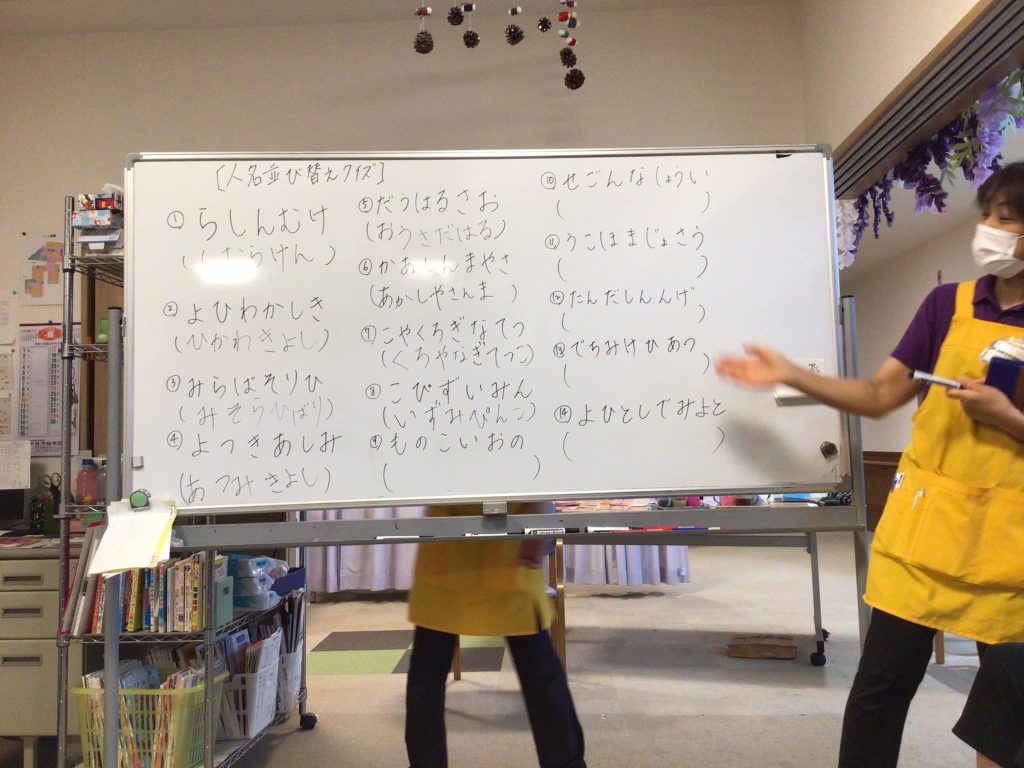 [人名並び替えクイズ]
① らしんむけ
(しむらけん)
② よひわかしき
(ひかわきよし)
③ みらばそりひ
(みそらひばり)
④ よつきあしみ
(あつみきよし)
⑤ だうはるさお
(おうさだはる)
⑥ かあしんまやさ
(あかしやさんま)
⑦ こやくろぎなてつ
(くろやなぎてつこ)
⑧ こぴずいみん
(いずみぴんこ)
⑨ ものこいおの
( )
⑩ せごんなしょうい
( )
⑪ うこほまじょさう
( )
⑫ たんだしんんげ
( )
⑬ でちみけひあつ
( )
⑭ よひとしでみよと
( )